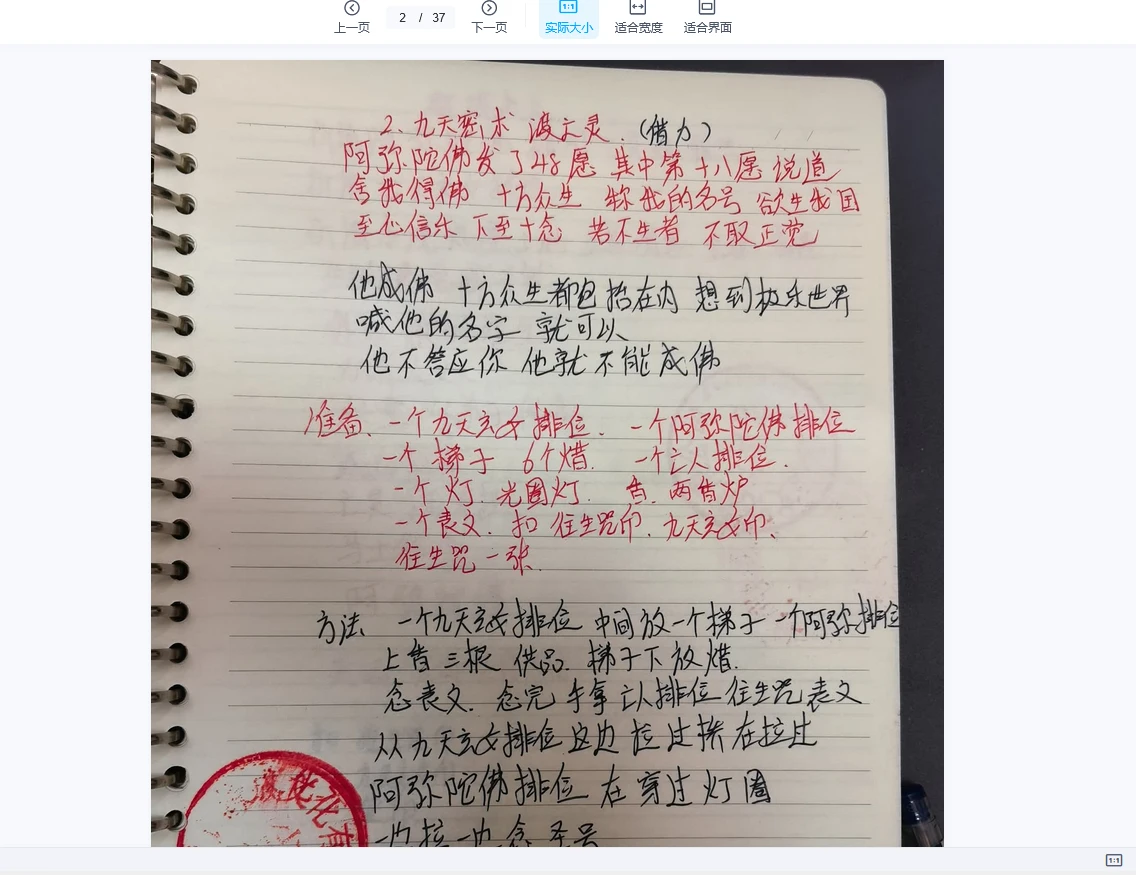 上一页
2 / 37
下一页
1:1
实际大小
适合宽度
适合界面
2、九天密术 渡亡灵．(借力)
阿弥陀佛发了48愿 其中第十八愿 说道
舍我得佛 十方众生 称我的名号 欲生我国
至心信乐 下至十念 若不生者 不取正觉
他成佛 十方众生都包括在内 想到极乐世界
喊他的名字 就可以
他不答应你 他就不能成佛
准备、一个九天玄女排位．一个阿弥陀佛排位
一个 梯子 6个烛．一个亡人排位．
一个灯．光圈灯．香．两香炉
一个表文．扣 往生咒印．九天玄女印、
往生咒一张．
方法 一个九天玄女排位 中间放一个梯子 一个阿弥排位
上香三根 供品．梯子下放烛．
念表文．念完 手拿亡人排位 往生咒 表文
从九天玄女排位这边 拉过梯 在拉过
阿弥陀佛排位 在穿过灯圈
一边拉一边念圣号
1:1